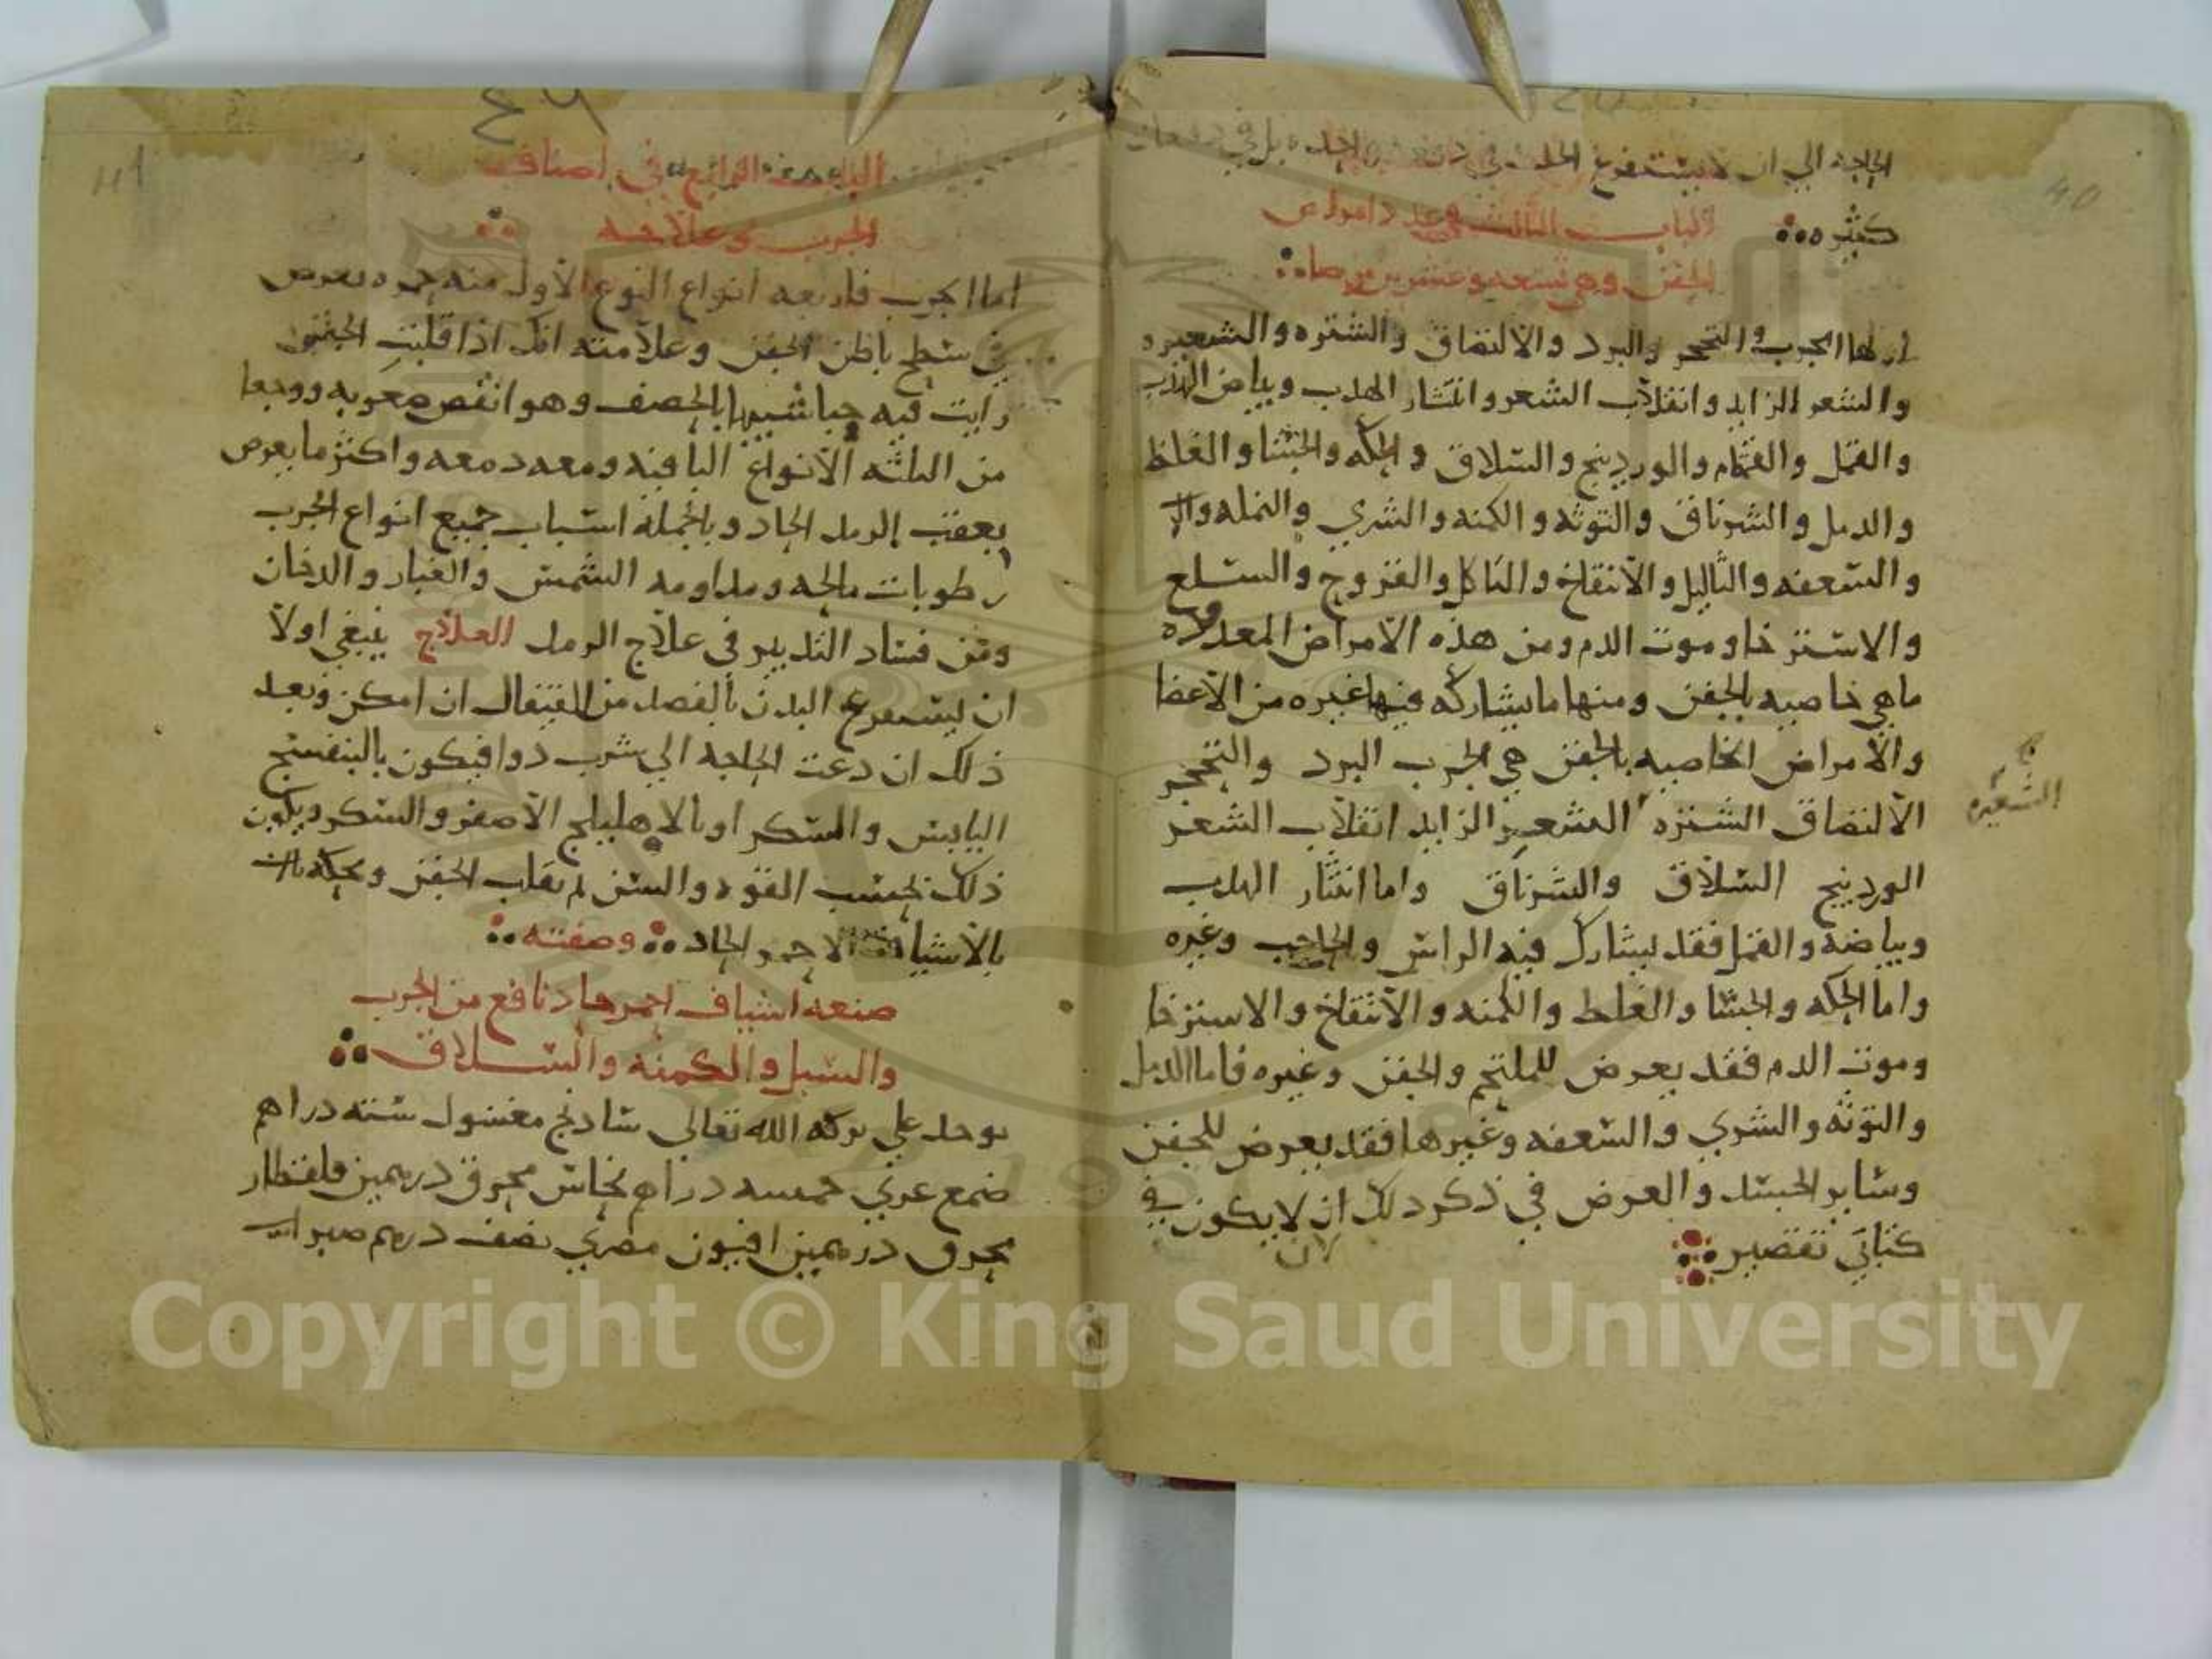 40
الحاجة الي ان لا يستفرغ الخلط في دفعه واحده بل في دفعات
كثيره
الباب الثالث في عدد امراض
الجفن وهي تسعه وعشرين مرضا
اولها الجرب والتحجر والبرد والالتصاق والشتره والشعيره
والشعر الزايد وانقلاب الشعر وانتثار الهدب وبياض الهدب
والقمل والقمقام والوردينج والسلاق والحكه والجشا والغلظ
والدمل والشرناق والتوثه والكمنه والشري والنمله
والسعفه والثاليل والانتفاخ والتاكل والقروح والسلع
والاسترخا وموت الدم ومن هذه الامراض المعدوده
ماهي خاصيه بالجفن ومنها مايشاركه فيها غيره من الاعضا
والامراض الخاصيه بالجفن هي الجرب البرد والتحجر
الالتصاق الشتره الشعر الزايد انقلاب الشعر
الشعيره
الوردينج السلاق والشرناق واما انتثار الهدب
وبياضه والقمل فقد يشارك فيه الراس والحاجب وغيره
واما الحكه والجشا والغلظ والكمنه والانتفاخ والاسترخا
وموت الدم فقد يعرض للملتحم والجفن وغيره فاما الدمل
والتوثه والشري والسعفه وغيرها فقد يعرض للجفن
وساير الجسد والعرض في ذكر ذلك ان لا يكون في
كتابي تقصير
41
٤٦
الباب الرابع في اصناف
الجرب وعلاجه
اما الجرب فاربعه انواع النوع الاول منه حمره تعرض
في سطح باطن الجفن وعلامته انك اذا قلبت الجفن
رايت فيه حبا شبيها بالحصف وهو انقص صعوبه ووجعا
من الثلثه الانواع الباقيه ومعه دمعه واكثر ما يعرض
بعقب الرمد الحاد وبالجملة اسباب جميع انواع الجرب
رطوبات مالحه ومداومه الشمس والغبار والدخان
ومن فساد التدبير في علاج الرمد العلاج ينبغي اولا
ان يستفرغ البدن بالفصد من القيفال ان امكن وبعد
ذلك ان دعت الحاجة الي شرب دوا فيكون بالبنفسج
اليابس والسكر او بالاهليلج الاصفر والسكر ويكون
ذلك بحسب القوه والسن ثم تقلب الجفن وتحكه
بالاشياف الاحمر الحاد وصفته
صنعه اشياف احمر حاد نافع من الجرب
والسبل والكمنه والسلاق
يوخذ علي بركه الله تعالي شادنج مغسول سته دراهم
صمغ عربي خمسه دراهم نحاس محرق درهمين قلقطار
محرق درهمين افيون مصري نصف درهم صبر